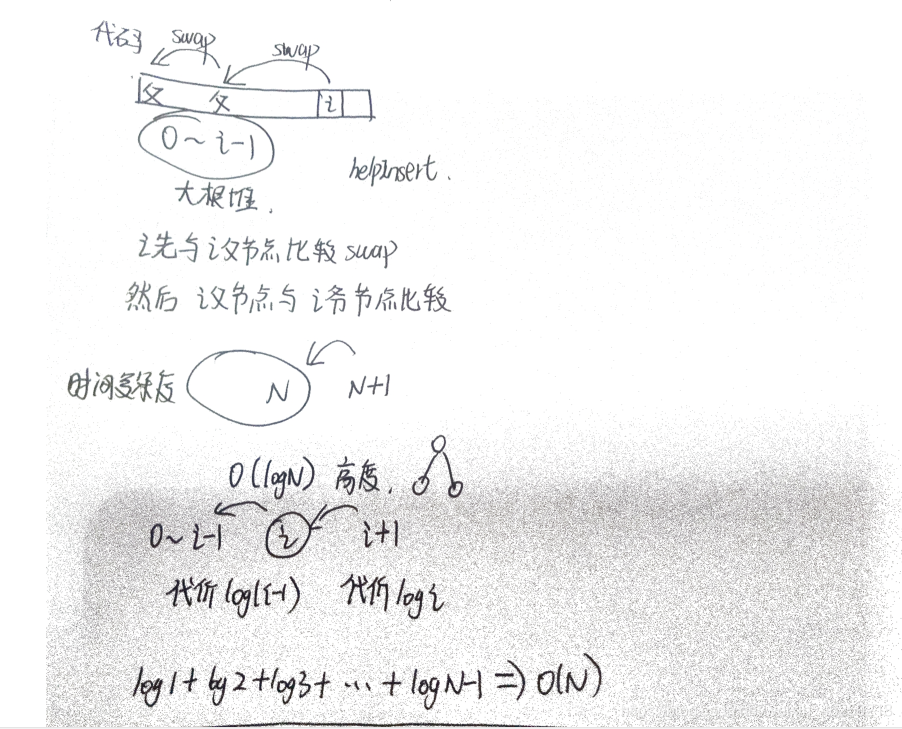 代码 swap swap
父 父 i
0~i-1
heapInsert.
大根堆.
i先与父节点比较 swap
然后 父节点与 爷节点比较
时间复杂度 N N+1
O(logN) 高度.
0~i-1 i i+1
代价log(i-1) 代价logi
log1+log2+log3+…+logN-1=>O(N)